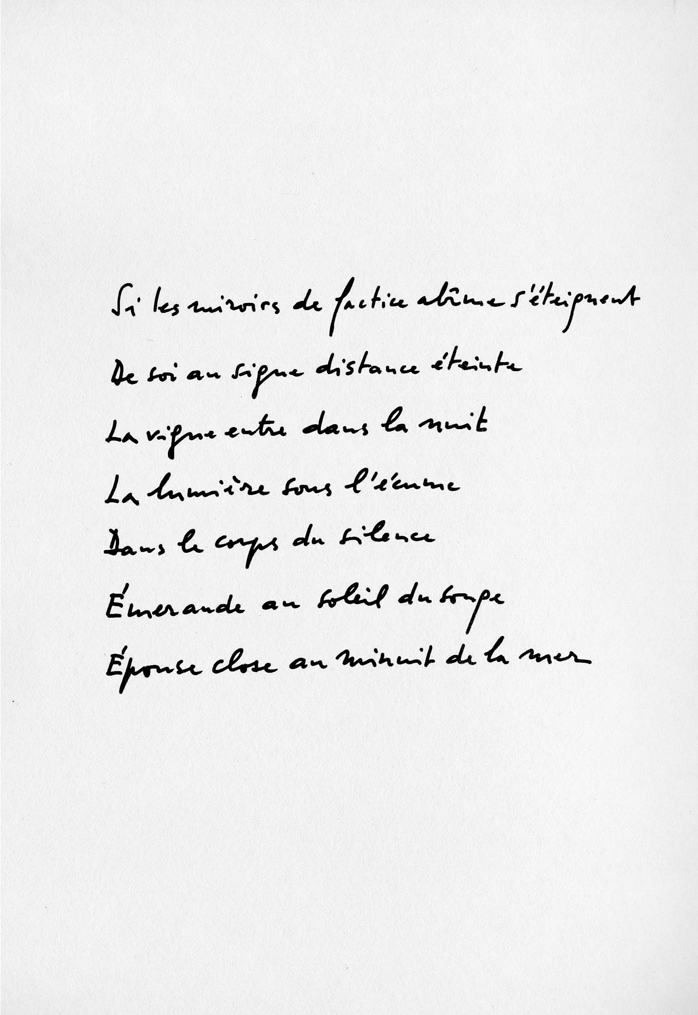 Si les miroirs de factice abîme s'éteignent
De soi au signe distance éteinte
La vigne entre dans la nuit
La lumière sous l'écume
Dans le corps du silence
Émeraude au soleil du songe
Épouse close au minuit de la mer